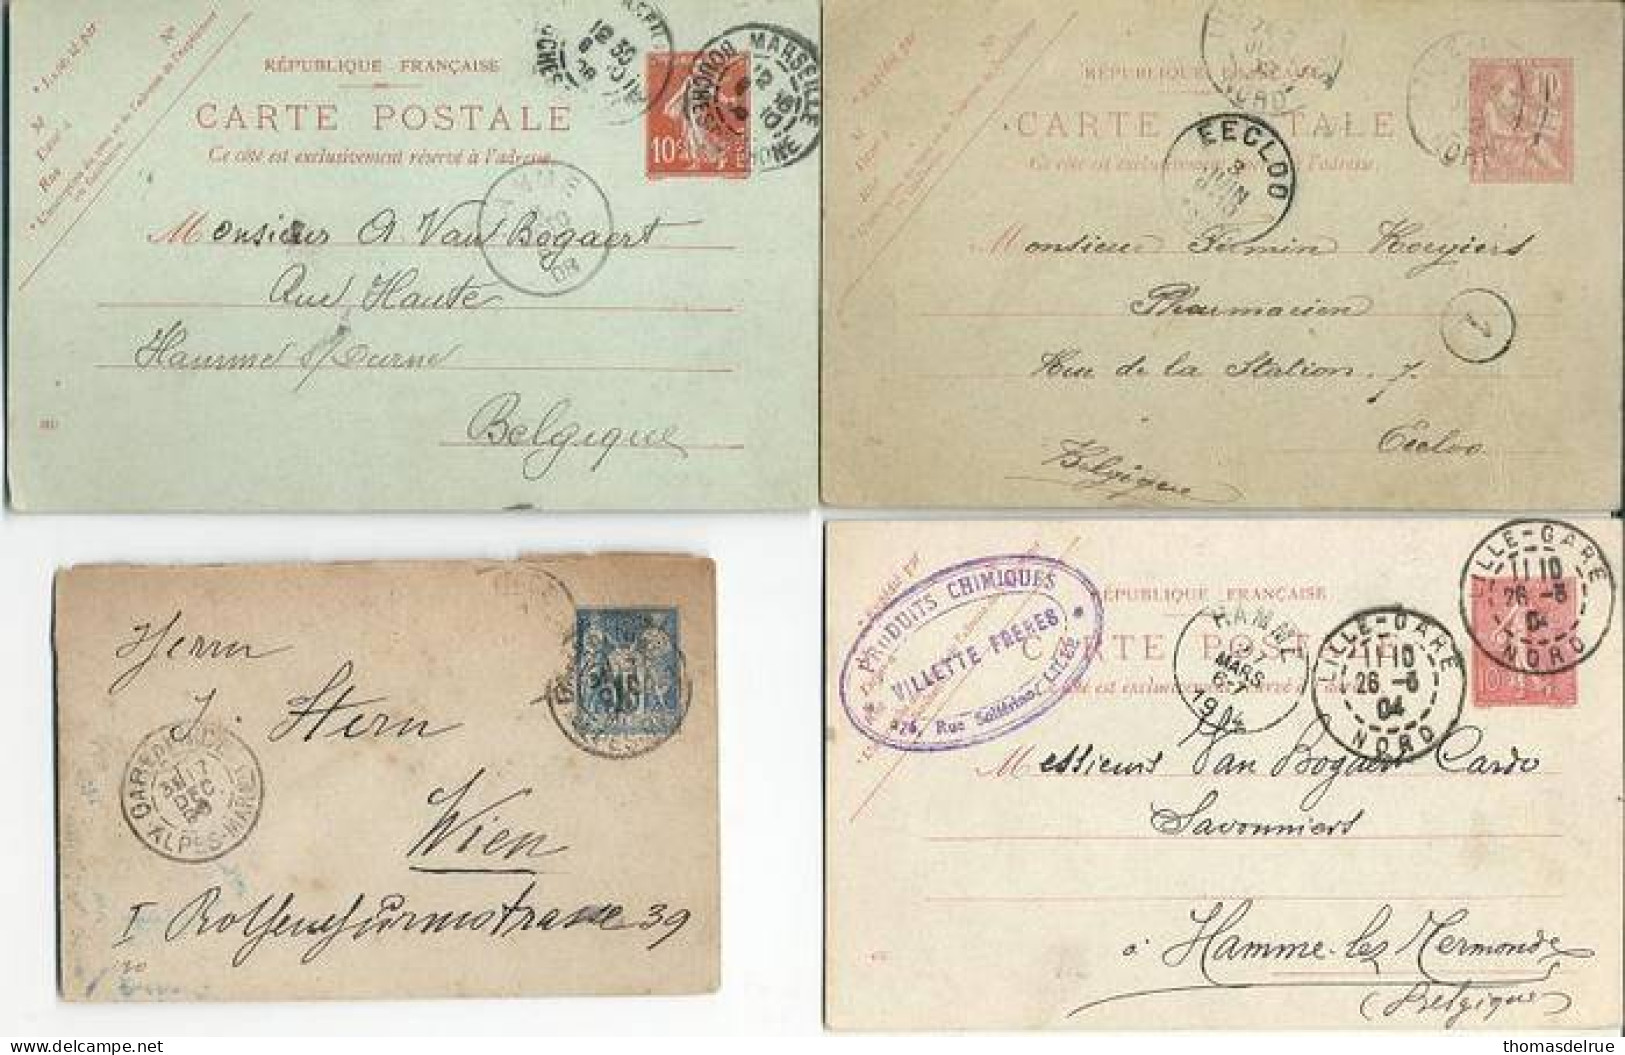 RÉPUBLIQUE FRANÇAISE
CARTE POSTALE
Ce côté est exclusivement réservé à l'adresse
10c
MARSEILLE
BOUCHES DU RHONE
Monsieur A Van Bogaert
Rue Haute
Hamme s/Durme
Belgique
RÉPUBLIQUE FRANÇAISE
CARTE POSTALE
Ce côté est exclusivement réservé à l'adresse
10
NORD
EECLOO
3
JUIN
Monsieur Firmin
Pharmacien
Rue de la Station. 7.
Eecloo
Belgique
1
Herrn
J. Stern
Wien
I 39
GARE DE NICE
17
DEC
ALPES-MARIT
15
RÉPUBLIQUE FRANÇAISE
CARTE POSTALE
Ce côté est exclusivement réservé à l'adresse
PRODUITS CHIMIQUES
VILLETTE FRÈRES
Rue Solférino LILLE
HAMME
27
MARS
6-7
1904
LILLE-GARE
11 10
26 - 3
04
NORD
LILLE-GARE
11 10
26 - 3
04
NORD
10c
Messieurs Van Bogaert Cardo
Savonniers
à Hamme-lez-Termonde
(Belgique)
thomasdelrue